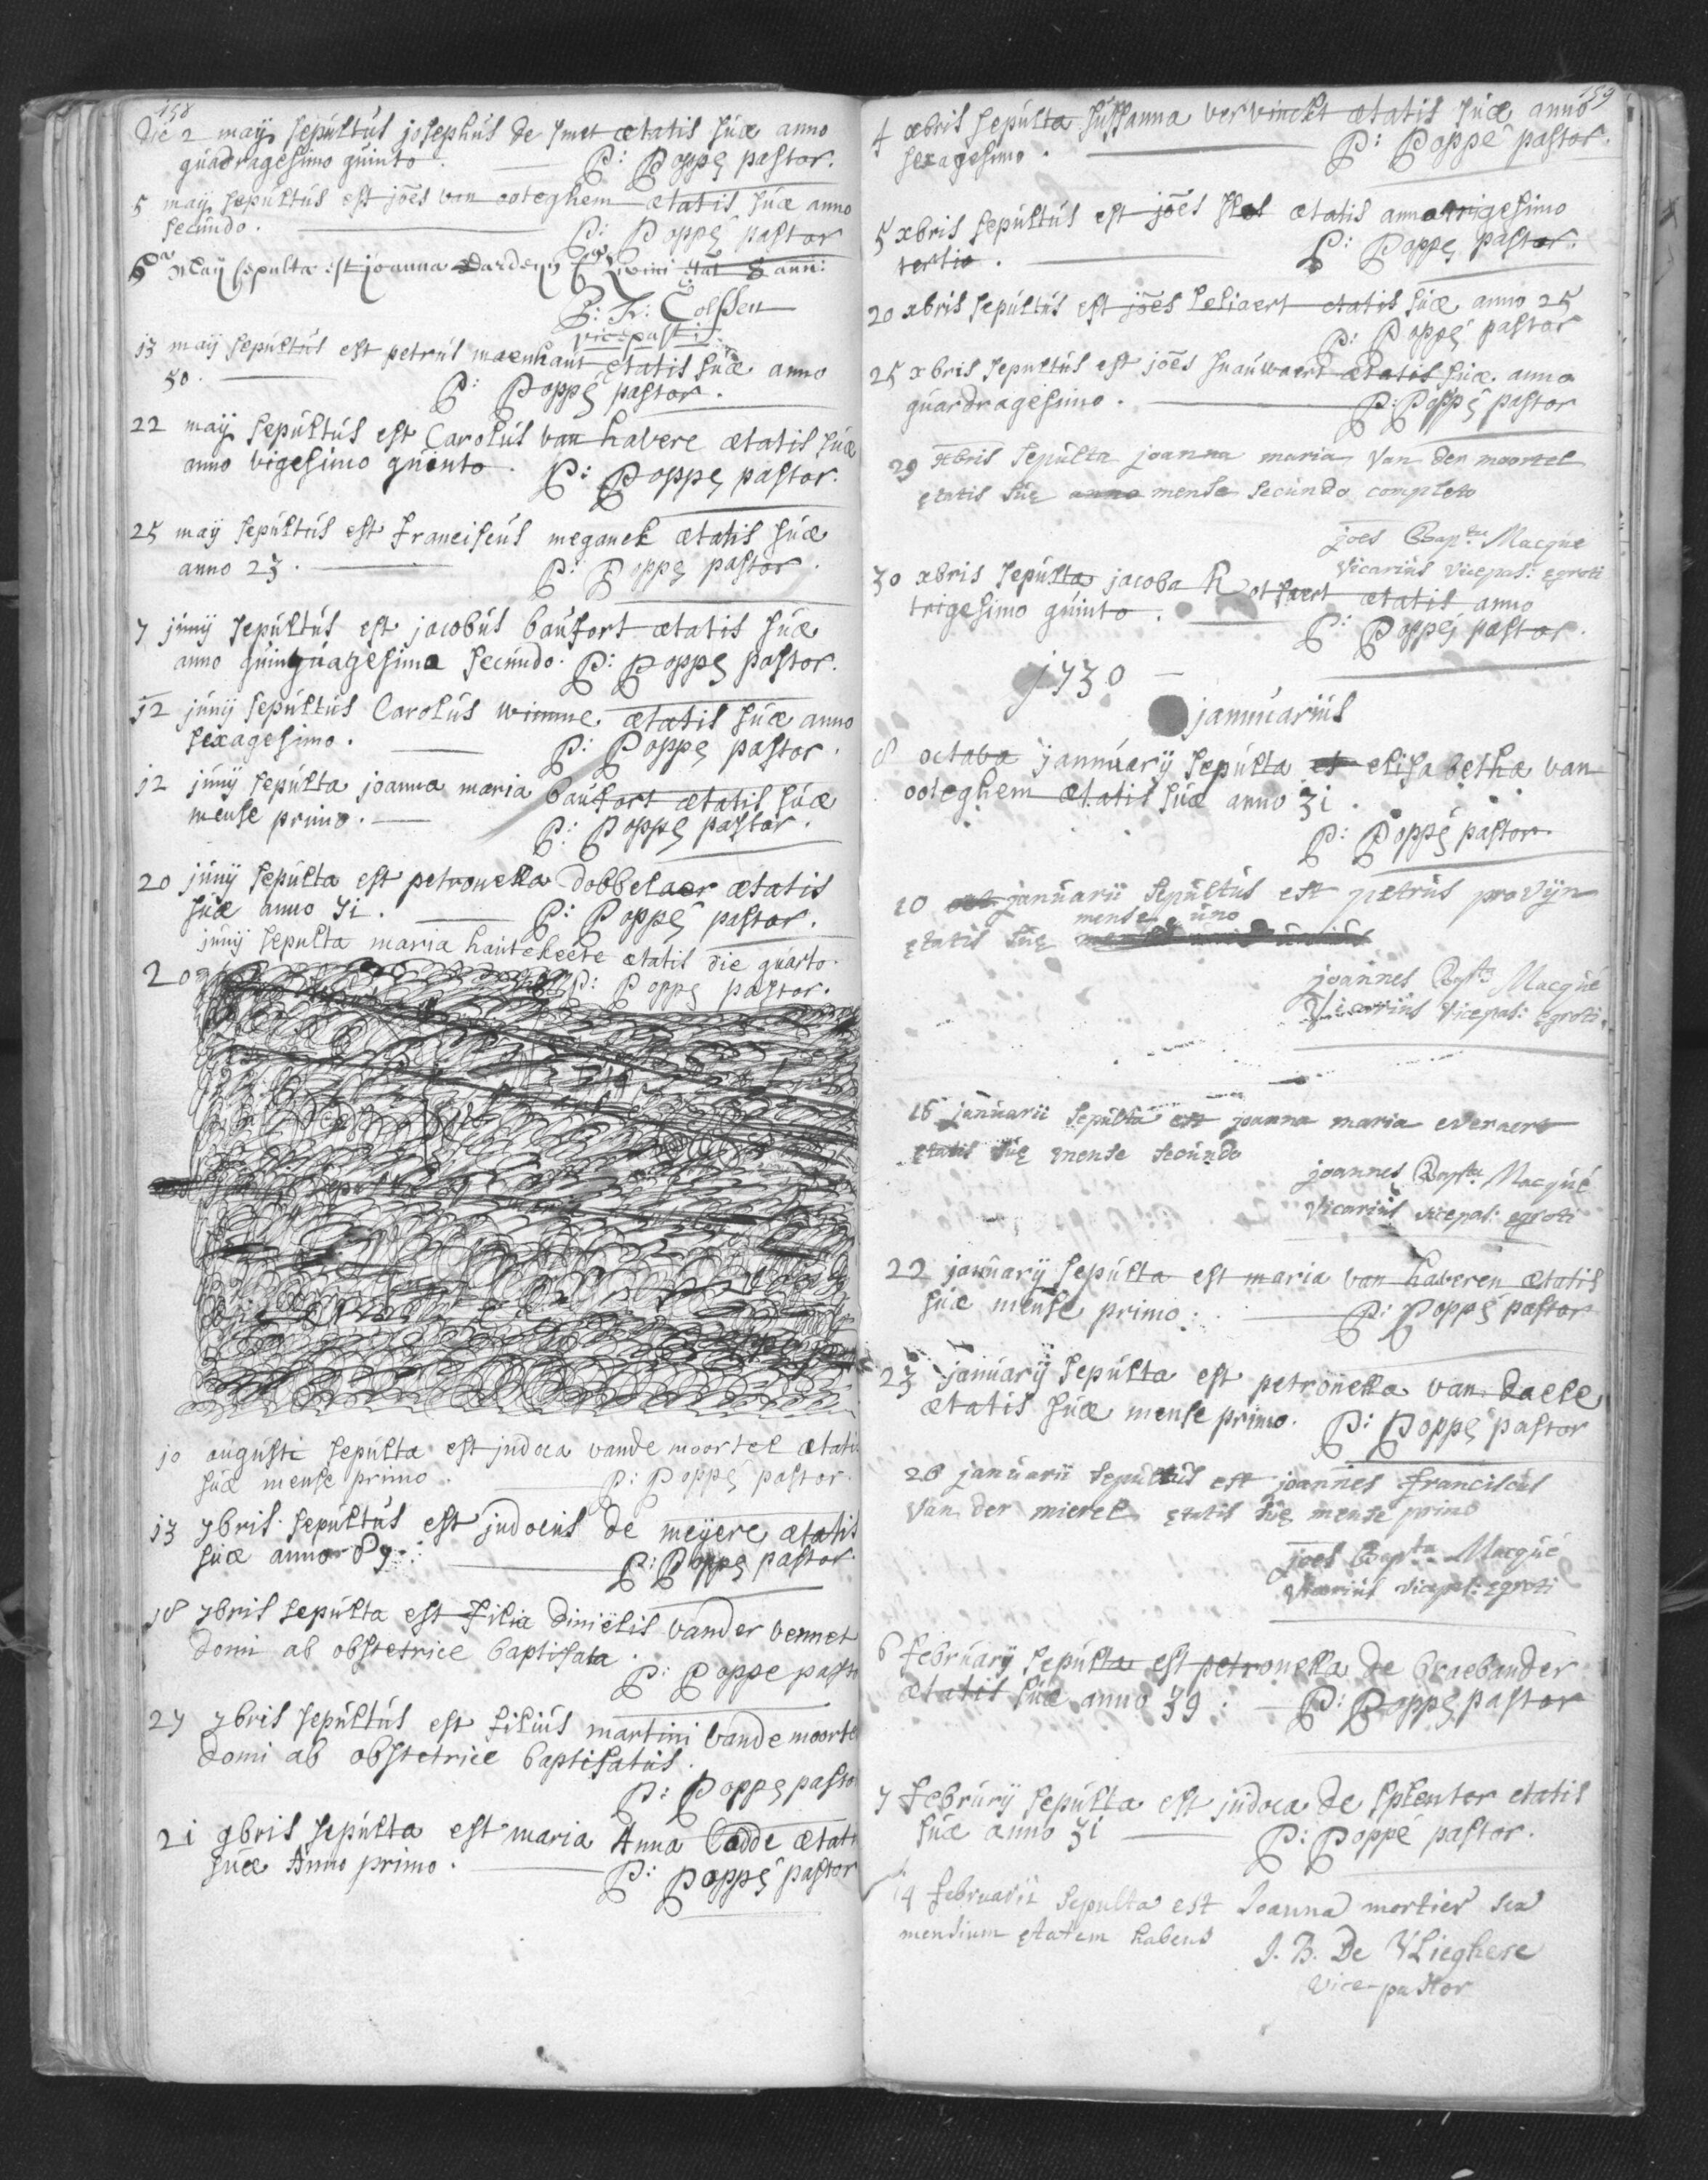 158
Die 2 maÿ sepúltús josephús de smet ætatis súæ anno
quadragesimo quinto. P: Poppe pastor.
5 maÿ sepúltús est joēs van ooteghem ætatis súæ anno
secúndo. P: Poppe pastor
maÿ sepulta est joanna Livini ætat 8 ann:
Colssen
vice past:
13 maÿ sepúltús est petrús maenhaút etatis súæ anno
50. P: Poppe pastor.
22 maÿ sepúltús est Carolús van havere ætatis súæ
anno vigesimo quinto. P: Poppe pastor.
25 maÿ sepúltús est franciscús meganck ætatis súæ
anno 23. P: Poppe pastor.
7 júnÿ sepúltús est jacobús baúfort ætatis súæ
anno quinquagesimo secúndo. P: Poppe pastor.
12 júnÿ sepúltús Carolús wimme ætatis súæ anno
sexagesimo. P: Poppe pastor.
12 júnÿ sepúlta joanna maria baúfort ætatis súæ
mense primo. P: Poppe pastor.
20 júnÿ sepúlta est petronella dobbelaer ætatis
súæ anno 71. P: Poppe pastor.
júnÿ sepulta maria haútekeete ætatis die quarto.
20 P: Poppe pastor.
10 aúgústi sepúlta est judoca vande moortel ætatis
súæ mense primo. P: Poppe pastor.
13 7bris sepúltús est judocús de meÿere ætatis
súæ anno 89. P: Poppe pastor.
18 7bris sepúlta est filia diniëlis vander vennet
domi ab obstetrice baptisata. P: Poppe pasto
27 7bris sepúltús est filiús martini vande moortel
domi ab obstetrice baptisatús.
P: Poppe pastor
21 9bris sepúlta est maria Anna Codde ætatis
súæ Anno primo. P: Poppe pastor
159
4 xbris sepúlta sússanna vervinckt ætatis súæ anno
sexagesimo. P: Poppe pastor.
5 xbris sepúltús est joēs ætatis anno trigesimo
tertio. P: Poppe pastor.
20 xbris sepúltús est joēs Leliaert etatis súæ anno 25
P: Poppe pastor
25 xbris sepultús est joēs snaúwaert ætatis súæ anno
quardragesimo. P: Poppe pastor
29 xbris sepúlta joanna maria Van der moortel
ętatis súę anno mense secúndo completo
joes Bapta Macqué
Vicariús vicepas: ęgroti
30 xbris sepúlta jacoba ætatis anno
trigesimo quinto. P: Poppe pastor.
1730
jannúariús
8 octava jannúarÿ sepúlta est elisabetha van
ooteghem ætatis súæ anno 31.
P: Poppe pastor.
10 janúarii sepúltús est petrús provÿn
mense úno
ętatis súę
joannes Bapta Macqué
Vicariús Vicepas: ęgroti.
16 janúarii sepúlta est joanna maria everaert
ętatis súę mense secúndo
joannes Bapta Macqúé
Vicariús vicepas: ęgroti
22 janúarÿ sepúlta est maria van haveren ætatis
súæ mense primo. P: Poppe pastor
23 janúarÿ sepúlta est petronella van daele
ætatis súæ mense primo. P: Poppe pastor
26 janúarii sepúltús est joannes franciscús
Van der mierel ętatis súę mense primo
joes Bapta Macqué
Vicariús vicepas: ęgroti
6 febrúarÿ sepúlta est petronella de braebander
ætatis súæ anno 39. P: Poppe pastor
7 febrúrÿ sepúlta est júdoca de splenter etatis
súæ anno 31 P: Poppe pastor.
14 februarii sepulta est Joanna mortier sex
mensium ętatem habens
J. B. De Vlieghere
vice-pastor